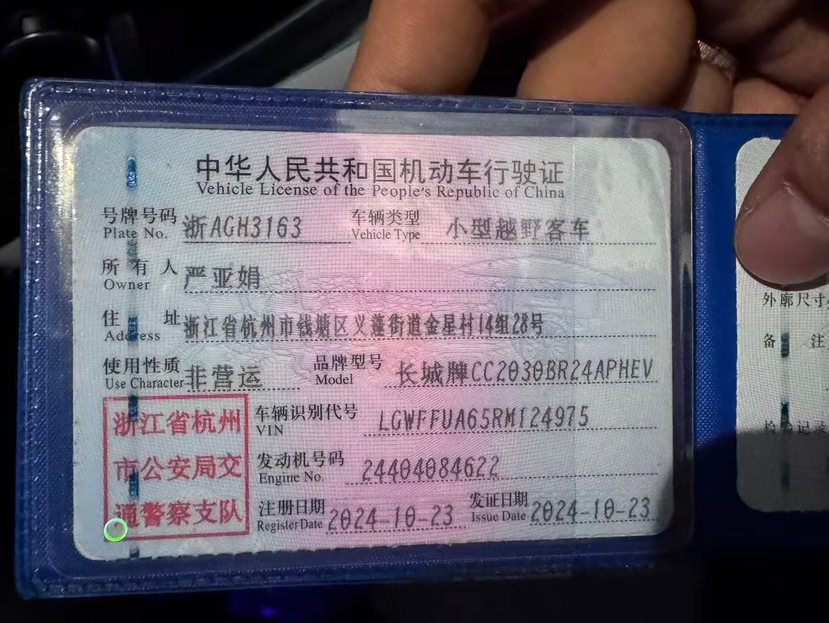 中华人民共和国机动车行驶证
Vehicle License of the People's Republic of China
号牌号码 浙AGH3163 车辆类型 小型越野客车
Plate No. Vehicle Type
所有人 严亚娟
Owner
住址 浙江省杭州市钱塘区义蓬街道金星村14组28号
Address
使用性质 非营运 品牌型号 长城牌CC2030BR24APHEV
Use Character Model
浙江省杭州
市公安局交
通警察支队
车辆识别代号 LGWFFUA65RM124975
VIN
发动机号码 24404084622
Engine No.
注册日期 2024-10-23 发证日期 2024-10-23
Register Date Issue Date
外廓尺寸
备注
检验记录